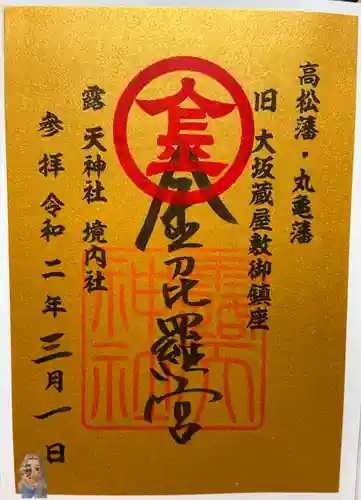 高松藩・丸亀藩
旧 大坂蔵屋敷御鎮座
金
金毘羅宮
露 天神社 境内社
参拝 令和二年三月一日